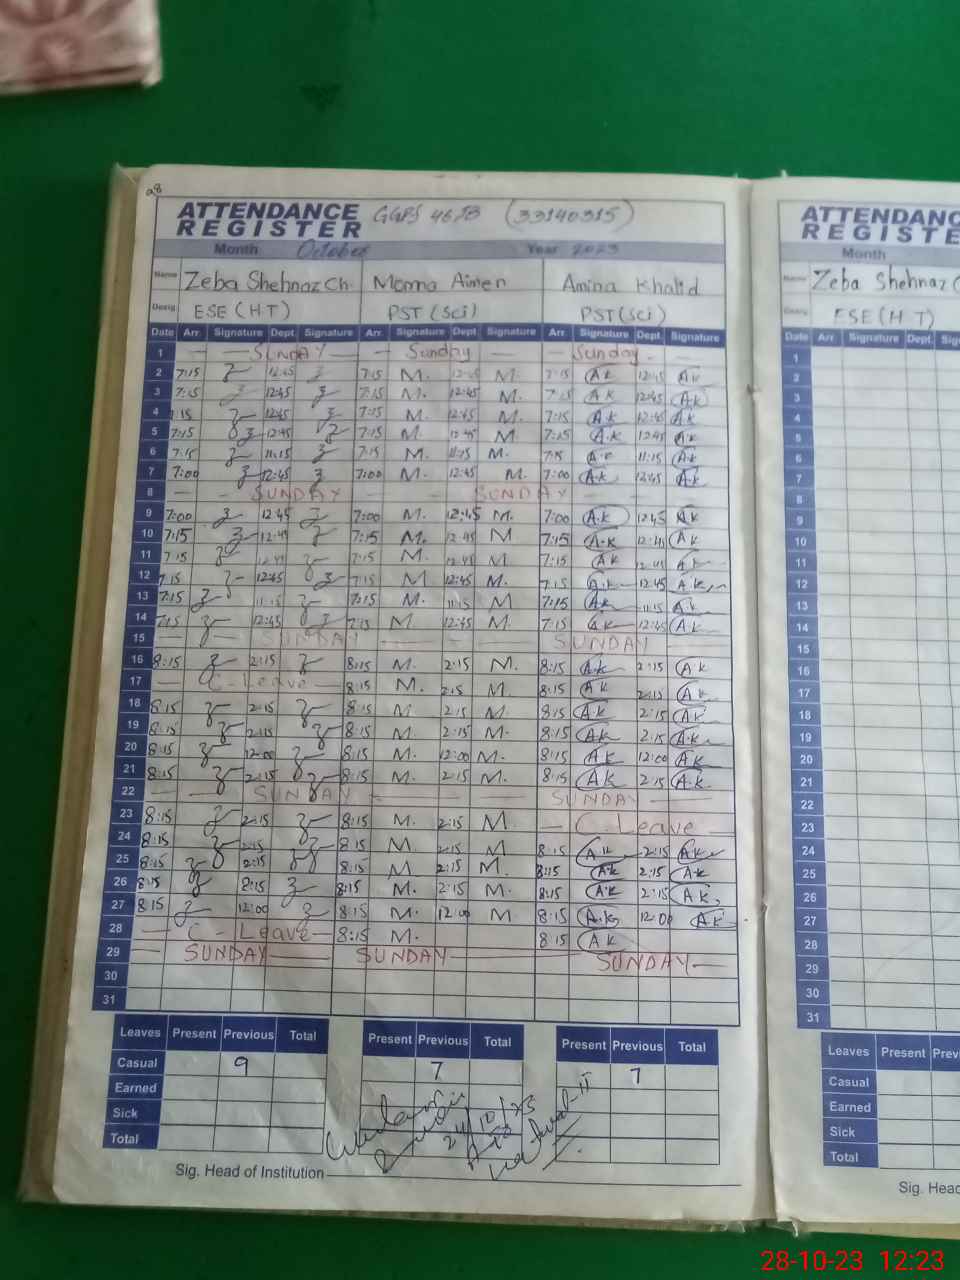 28
ATTENDANCE REGISTER GGPS 46JB (33140315)
Month October Year 2023
Name Zeba Shehnaz Ch. Momna Aimen Amina Khalid
Desig ESE (H.T) PST (Sci) PST (Sci)
Date Arr. Signature Dept. Signature Arr. Signature Dept. Signature Arr. Signature Dept. Signature
1 SUNDAY Sunday Sunday
2 7:15 12:45 7:15 M. 12:45 M. 7:15 A.K 12:45 A.K
3 7:15 12:45 7:15 M. 12:45 M. 7:15 A.K 12:45 A.K
4 7:15 12:45 7:15 M. 12:45 M. 7:15 A.K 12:45 A.K
5 7:15 12:45 7:15 M. 12:45 M 7:15 A.K 12:45 A.K
6 7:15 11:15 7:15 M. 11:15 M. 7:15 A.K 11:15 A.K
7 7:00 12:45 7:00 M. 12:45 M. 7:00 A.K 12:45 A.K
8 SUNDAY SUNDAY
9 7:00 12:45 7:00 M. 12:45 M. 7:00 A.K 12:45 A.K
10 7:15 12:45 7:15 M. 12:45 M 7:15 A.K 12:45 A.K
11 7:15 12:45 7:15 M. 12:45 M 7:15 A.K 12:45 A.K
12 7:15 12:45 7:15 M 12:45 M. 7:15 A.K 12:45 A.K
13 7:15 11:15 7:15 M. 11:15 M 7:15 A.K 11:15 A.K
14 7:15 12:45 7:15 M 12:45 M. 7:15 A.K 12:45 A.K
15 SUNDAY SUNDAY
16 8:15 2:15 8:15 M. 2:15 M. 8:15 A.K 2:15 A.K
17 C-Leave 8:15 M. 2:15 M. 8:15 A.K 2:15 A.K
18 8:15 2:15 8:15 M 2:15 M. 8:15 A.K 2:15 A.K
19 8:15 2:15 8:15 M. 2:15 M. 8:15 A.K 2:15 A.K
20 8:15 12:00 8:15 M. 12:00 M. 8:15 A.K 12:00 A.K
21 8:15 2:15 8:15 M. 2:15 M. 8:15 A.K 2:15 A.K
22 SUNDAY SUNDAY
23 8:15 2:15 8:15 M. 2:15 M. C.Leave
24 8:15 2:15 8:15 M. 2:15 M 8:15 A.K 2:15 A.K
25 8:15 2:15 8:15 M. 2:15 M. 8:15 A.K 2:15 A.K
26 8:15 2:15 8:15 M. 2:15 M. 8:15 A.K 2:15 A.K
27 8:15 12:00 8:15 M. 12:00 M 8:15 A.K 12:00 A.K
28 C-Leave 8:15 M. 8:15 A.K
29 SUNDAY SUNDAY SUNDAY
30
31
Leaves Present Previous Total Present Previous Total Present Previous Total
Casual 9 7 7
Earned
Sick
Total
24/10/23
Sig. Head of Institution
ATTENDANCE
REGISTE
Month
Name Zeba Shehnaz C
Desig ESE (H.T)
Date Arr. Signature Dept. Sig
1
2
3
4
5
6
7
8
9
10
11
12
13
14
15
16
17
18
19
20
21
22
23
24
25
26
27
28
29
30
31
Leaves Present Prev
Casual
Earned
Sick
Total
Sig. Head
28-10-23 12:23